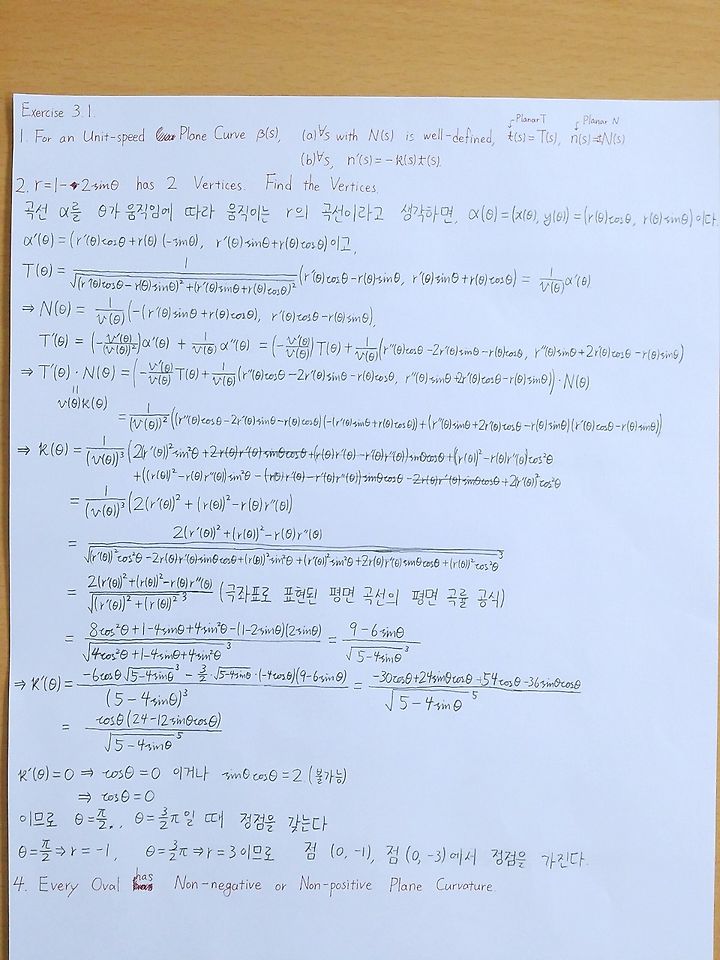 Exercise 3.1.
↙Planar T ↙Planar N
1. For an Unit-speed Plane Curve β(s), (a)∀s with N(s) is well-defined, t(s)=T(s), n(s)=N(s)
(b)∀s, n'(s)=-k(s)t(s).
2. r=1-2sinθ has 2 Vertices. Find the Vertices
곡선 α를 θ가 움직임에 따라 움직이는 r의 곡선이라고 생각하면, α(θ)=(x(θ), y(θ))=(r(θ)cosθ, r(θ)sinθ)이다.
α'(θ)=(r'(θ)cosθ+r(θ)(-sinθ), r'(θ)sinθ+r(θ)cosθ)이고,
T(θ)= 1/√((r'(θ)cosθ-r(θ)sinθ)²+(r'(θ)sinθ+r(θ)cosθ)²) (r'(θ)cosθ-r(θ)sinθ, r'(θ)sinθ+r(θ)cosθ) = 1/v(θ) α'(θ)
⇒ N(θ)= 1/v(θ) (-(r'(θ)sinθ+r(θ)cosθ), r'(θ)cosθ-r(θ)sinθ),
T'(θ)=(-v'(θ)/(v(θ))²)α'(θ) + 1/v(θ) α''(θ) = (-v'(θ)/v(θ))T(θ)+ 1/v(θ) (r''(θ)cosθ-2r'(θ)sinθ-r(θ)cosθ, r''(θ)sinθ+2r'(θ)cosθ-r(θ)sinθ)
⇒ T'(θ)·N(θ)=(-v'(θ)/v(θ) T(θ)+ 1/v(θ) (r''(θ)cosθ-2r'(θ)sinθ-r(θ)cosθ, r''(θ)sinθ+2r'(θ)cosθ-r(θ)sinθ))·N(θ)
॥
v(θ)k(θ)
= 1/(v(θ))² ((r''(θ)cosθ-2r'(θ)sinθ-r(θ)cosθ)(-(r'(θ)sinθ+r(θ)cosθ))+(r''(θ)sinθ+2r'(θ)cosθ-r(θ)sinθ)(r'(θ)cosθ-r(θ)sinθ))
⇒ k(θ)= 1/(v(θ))³ (2(r'(θ))²sin²θ+2r(θ)r'(θ)sinθcosθ+(r(θ)r'(θ)-r'(θ)r''(θ))sinθcosθ+((r(θ))²-r(θ)r''(θ))cos²θ
+((r(θ))²-r(θ)r''(θ))sin²θ-(r(θ)r'(θ)-r'(θ)r''(θ))sinθcosθ-2r(θ)r'(θ)sinθcosθ+2(r'(θ))²cos²θ
= 1/(v(θ))³ (2(r'(θ))²+(r(θ))²-r(θ)r''(θ))
= 2(r'(θ))²+(r(θ))²-r(θ)r''(θ) / √((r'(θ))²cos²θ-2r(θ)r'(θ)sinθcosθ+(r(θ))²sin²θ+(r'(θ))²sin²θ+2r(θ)r'(θ)sinθcosθ+(r(θ))²cos²θ)³
= 2(r'(θ))²+(r(θ))²-r(θ)r''(θ) / √((r'(θ))²+(r(θ))²)³ (극좌표로 표현된 평면 곡선의 평면 곡률 공식)
= 8cos²θ+1-4sinθ+4sin²θ-(1-2sinθ)(2sinθ) / √(4cos²θ+1-4sinθ+4sin²θ)³ = 9-6sinθ / √(5-4sinθ)³
⇒ k'(θ)= -6cosθ√(5-4sinθ)³ - 3/2·√(5-4sinθ)·(-4cosθ)(9-6sinθ) / (5-4sinθ)³ = -30cosθ+24sinθcosθ+54cosθ-36sinθcosθ / √(5-4sinθ)⁵
= cosθ(24-12sinθcosθ) / √(5-4sinθ)⁵
k'(θ)=0 ⇒ cosθ=0 이거나 sinθcosθ=2 (불가능)
⇒ cosθ=0
이므로 θ=π/2, θ=3/2π일 때 정점을 갖는다
θ=π/2⇒r=-1, θ=3/2π⇒r=3이므로 점 (0,-1), 점 (0,-3)에서 정점을 가진다.
4. Every Oval has Non-negative or Non-positive Plane Curvature.